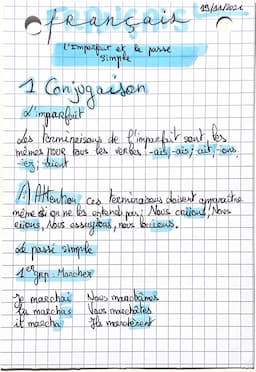 FRANÇAIS
19/11/2021
français
L'Imparfait et le passé
simple
1 Conjugaison
L'imparfait
Les terminaisons de l'imparfait sont les
mêmes pour tous les verbes : -ais, -ais, ait, -ions,
-iez, -aient
Attention ces terminaisons doivent apparaître
même si on ne les entend pas : Nous criions, Nous
riions, Nous essuyions,
Le passé simple
1er grp : Marcher
Je marchai Nous marchâmes
Tu marchas Vous marchâtes
il marcha Ils marchèrent